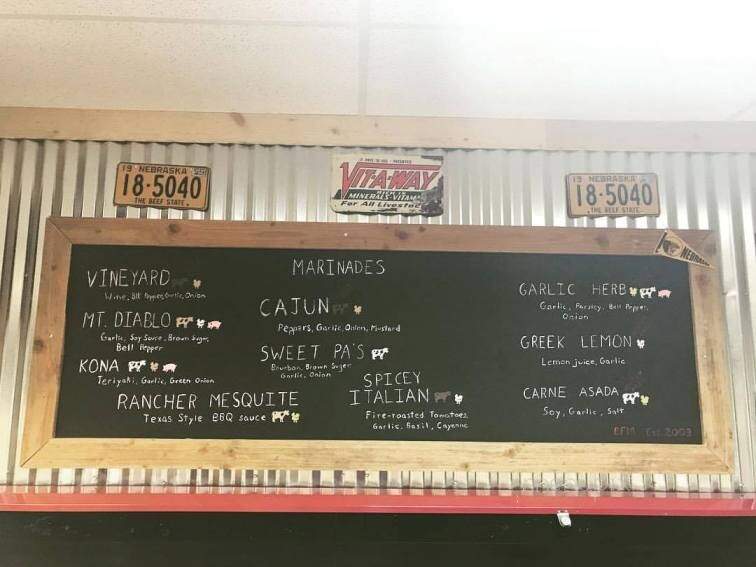 19 NEBRASKA
18-5040
THE BEEF STATE
VIT-A-WAY
MINERALS-VITAMINS
For All Livestock
19 NEBRASKA
18-5040
THE BEEF STATE
MARINADES
VINEYARD
Wine, Blk Pepper, Garlic, Onion
MT. DIABLO
Garlic, Soy Sauce, Brown Sugar,
Bell Pepper
KONA
Teriyaki, Garlic, Green Onion
RANCHER MESQUITE
Texas Style BBQ sauce
CAJUN
Peppers, Garlic, Onion, Mustard
SWEET PA'S
Bourbon, Brown Sugar
Garlic, Onion
SPICEY
ITALIAN
Fire-roasted Tomatoes,
Garlic, Basil, Cayenne
GARLIC HERB
Garlic, Parsley, Bell Pepper,
Onion
GREEK LEMON
Lemon juice, Garlic
CARNE ASADA
Soy, Garlic, Salt
EFM Est. 2003